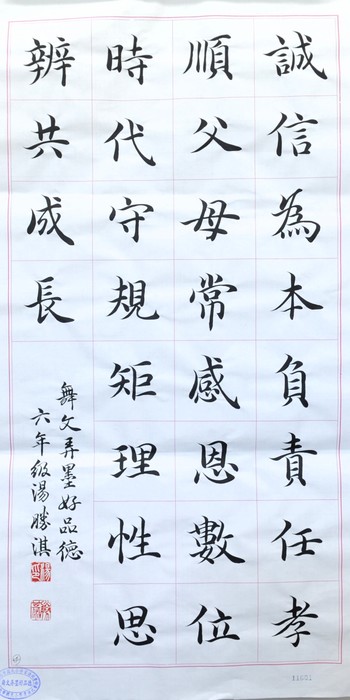 誠信為本負責任孝
順父母常感恩數位
時代守規矩理性思
辨共成長
舞文弄墨好品德
六年級湯勝淇